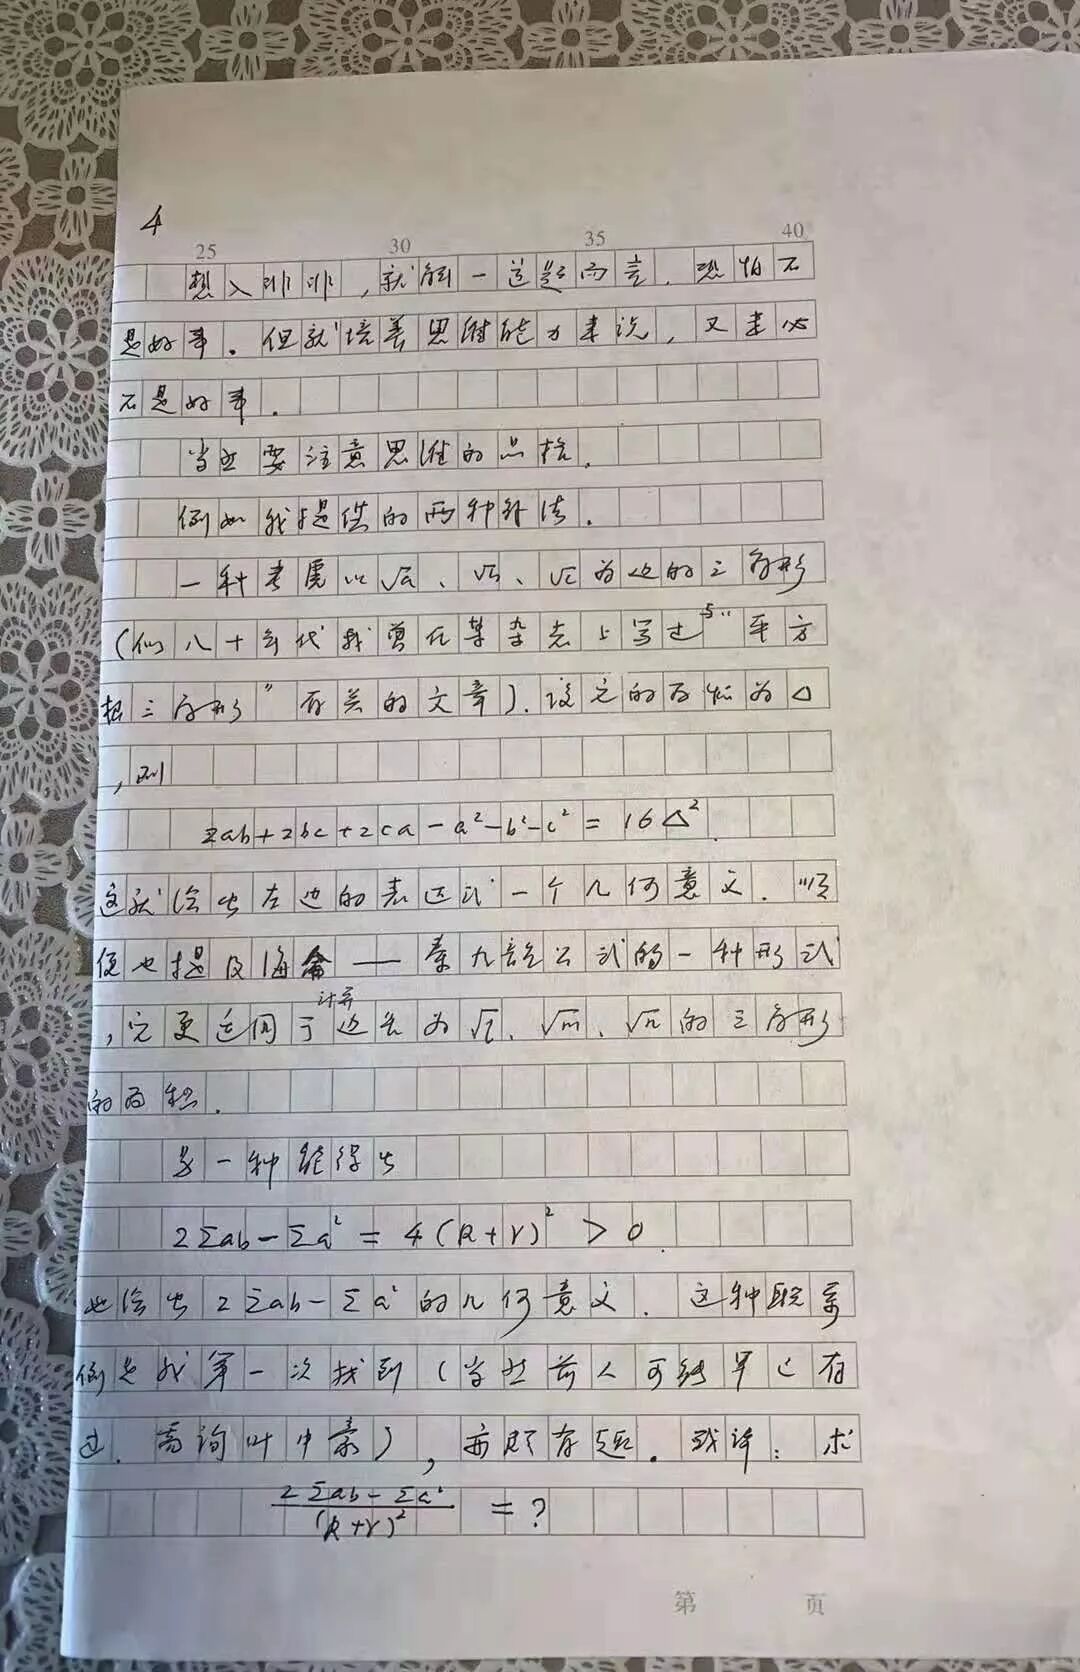 4
25 30 35 40
想入非非，就解一道题而言，恐怕不
是好事。但就培养思维能力来说，又未必
不是好事。
当然要注意思维的品格。
例如我提供的两种外法。
一种考虑以√a、√b、√c为边的三角形
（似八十年代我曾在某杂志上写过与"平方
根三角形"有关的文章）。设它的面积为△
，则
2ab+2bc+2ca-a²-b²-c²=16△²
这就给出左边的表达式一个几何意义。顺
便也提及海伦——秦九韶公式的一种形式
，它更适用于计算边长为√l、√m、√n的三角形
的面积。
另一种能得出
2Σab-Σa²=4(R+r)²>0
也给出2Σab-Σa²的几何意义。这种联系
倒是我第一次找到（当然前人可能早已有
过，需询叶中豪），亦颇有趣。或译：求
2Σab-Σa²/(R+r)²=?
第 页